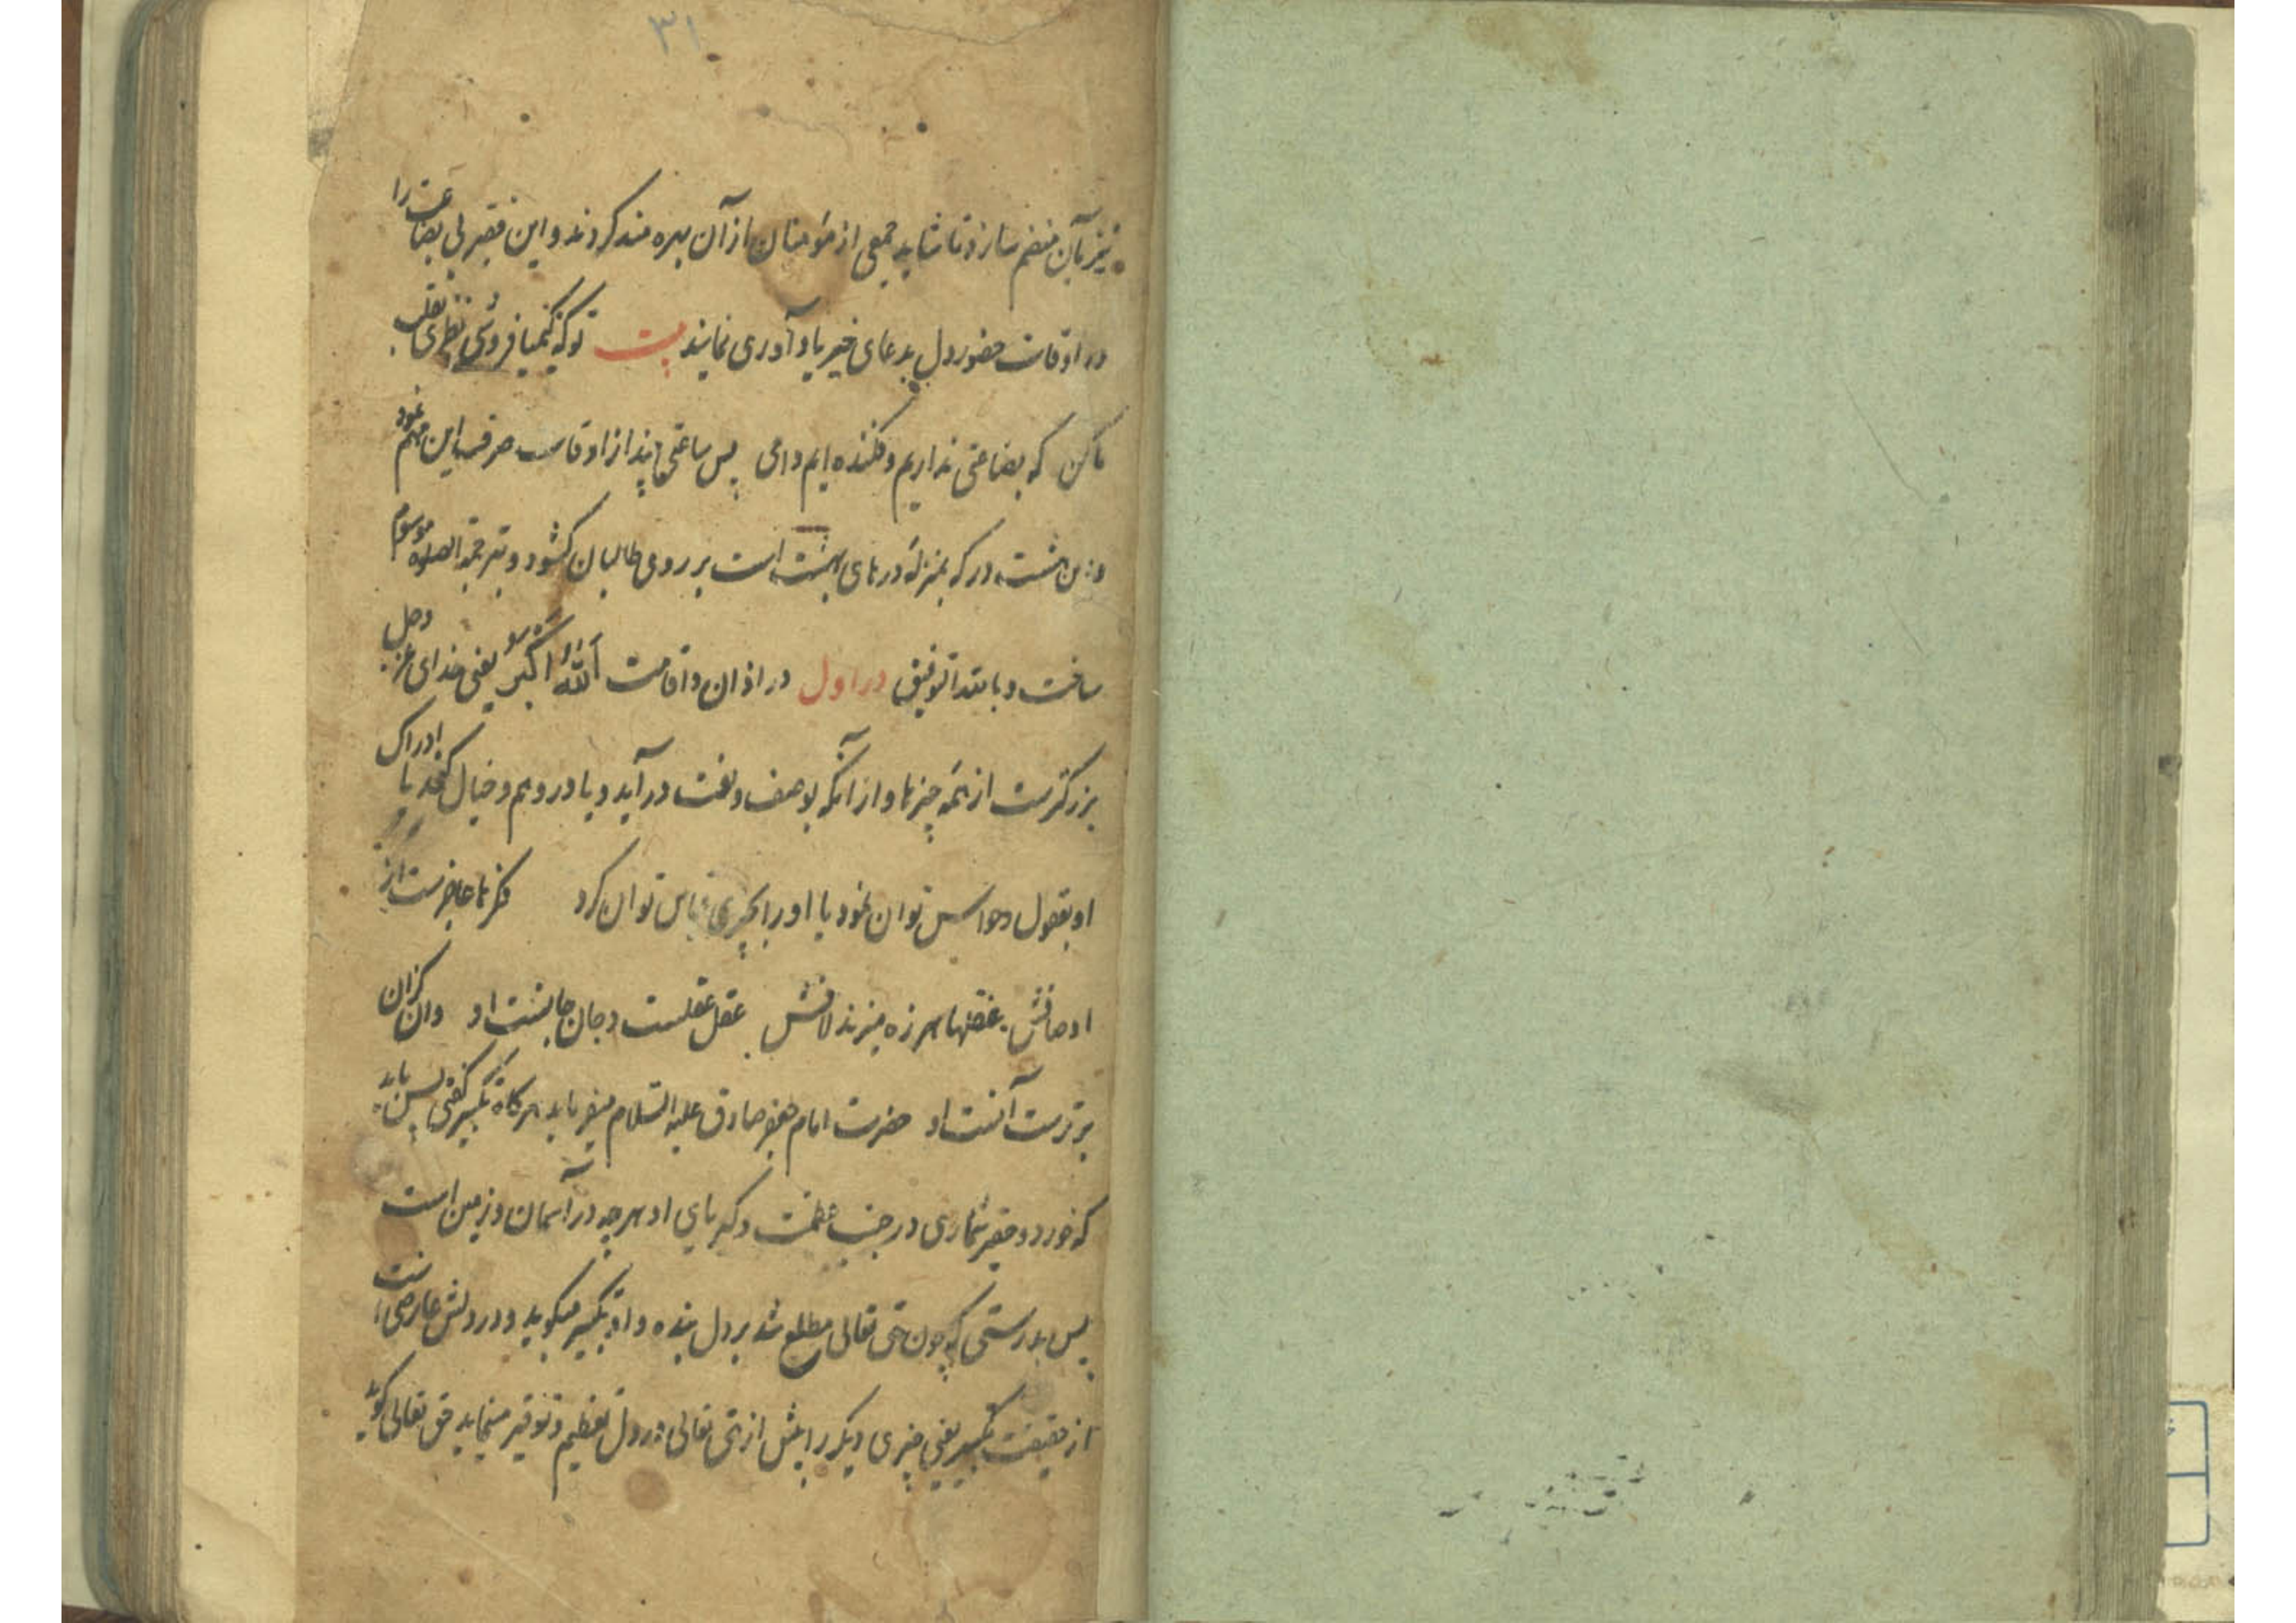 ۳۱
نیز بآن منضم سازد تا شاید جمعی از مؤمنان از آن بهره مند کردند و این فقیر بی بضاعت را
در اوقات حضور دل بدعای خیر یادآوری نمایند بیت توکه کیمیا فروشی نظری بقلب
ما کن که بضاعتی نداریم و فکنده ایم دامی پس ساعتی چند از اوقات صرف این مهم نمود
و این هشت در که بمنزلهٔ درهای بهشت است بر روی طالبان کشود و بترجمة الصلوة موسوم
ساخت و بالله التوفیق در اول در اذان و اقامت اَللّٰهُ اَکبَرُ یعنی خدای عز وجل
بزرکترست از همه چیزها و از آنکه بوصف و نعت در آید و یا در وهم و خیال کنجد یا ادراک
او بعقول و حواس توان نمود یا او را بچیزی قیاس توان کرد فکرها عاجزست از
اوصافش عقلها هرزه میزند لافش عقل عقلست و جان جانست او وان کزان
برترست آنست او حضرت امام جعفر صادق علیه السلام میفرماید هرکاه تکبیر کفتی پس باید
که خورد و حقیر شماری در جنب عظمت و کبریای او هرچه در آسمان و زمین است
پس بدرستی که چون حق تعالی مطلع شد بر دل بنده و او تکبیر میکوید و در دلش عارضی است
از حقیقت تکبیر یعنی چیزی دیکر را بیش از حق تعالی در دل تعظیم و توقیر مینماید حق تعالی کوید